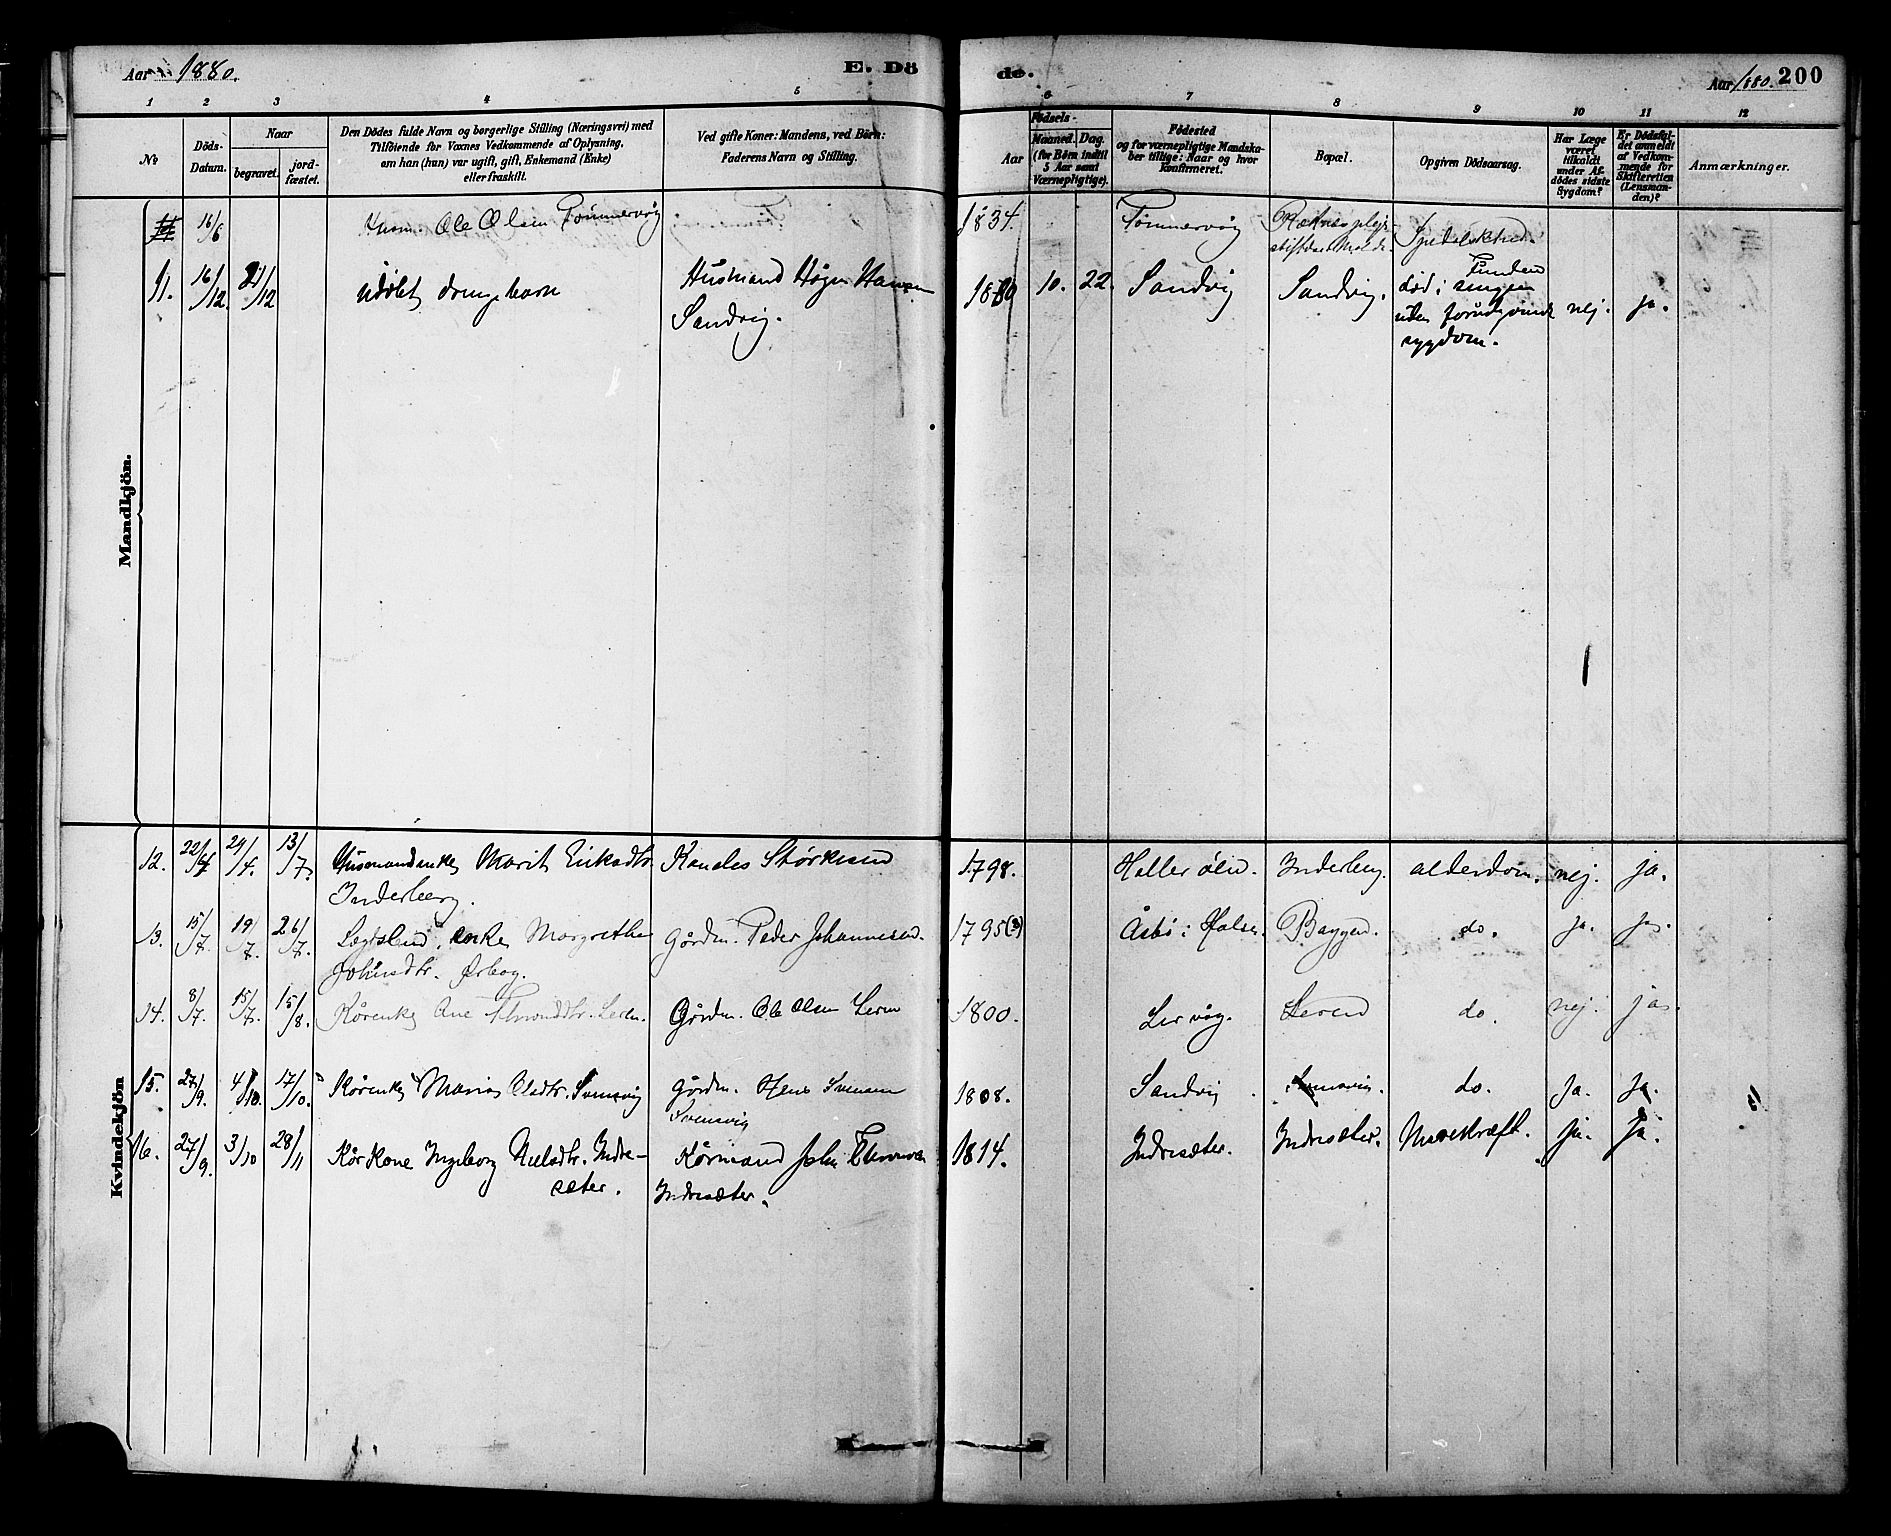 Aar 1880.
E. Dö
de.
Aar 1880. 200
1 2 3 4 5 6 7 8 9 10 11 12
No
Döds-Datum.
Naar
begravet.
jord-fæstet.
Den Dödes fulde Navn og borgerlige Stilling (Næringsvei) med
Tilföiende for Voxnes Vedkommende af Oplysning,
om han (hun) var ugift, gift, Enkemand (Enke)
eller fraskilt.
Ved gifte Koner: Mandens, ved Börn:
Faderens Navn og Stilling.
Födsels-
Aar
Maaned. Dag.
(for Börn indtil
5 Aar samt
Værnepligtige).
Födested
og for værnepligtige Mandska-
ber tillige: Naar og hvor
konfirmeret.
Bopæl.
Opgiven Dödsaarsag.
Har Læge
været
tilkaldt
under Af-
dödes sidste
Sygdom?
Er Dödsfal-
det anmeldt
af Vedkom-
mende for
Skifteretten
(Lensman-
den)?
Anmærkninger.
Mandkjön.
16/6 Husm. Ole Olsen Tømmervåg 1834. Tømmervåg Reknes pleje-
stiftelse Molde. Spedalskhed.
11. 16/12. 21/12 udøbt drengebarn Husmand Højen Hansen
Sandvig. 1880 10. 22. Sandvig Sandvig. Funden
død i sengen
uden forudgående
sygdom. nej. ja.
Kvindekjön
12. 22/4 29/4. 13/7. Husmandenke Marit Eriksdtr.
Inderberg. Kanales Størkersen 1798. Inderberg. alderdom. nej. ja.
13. 15/7. 19/7. 26/7. Lægdslem, enke Margrethe
Johnsdtr. Gårdm. Peder Johannesen. 1795(?) Åsbø i Halse. Baggen. do. ja. ja.
14. 8/7. 15/7. 15/8. Kårenke Ane Leren. Gårdm. Ole Olsen Leren 1800. Lervåg. Leren do. nej. ja.
15. 27/9. 4/10. 17/10. Kårenke Marie Olsdtr. Svensvig Gårdm. Svensen
Svensvig 1808. Sandvig. Svensvig. do. Ja. ja.
16. 27/9. 3/10 28/11 Kårkone Ingeborg Nielsdtr. Indre-
sæter. Kårmand John
Indresæter. 1814. Indresæter. Indresæter. Mavekræft. ja. ja.